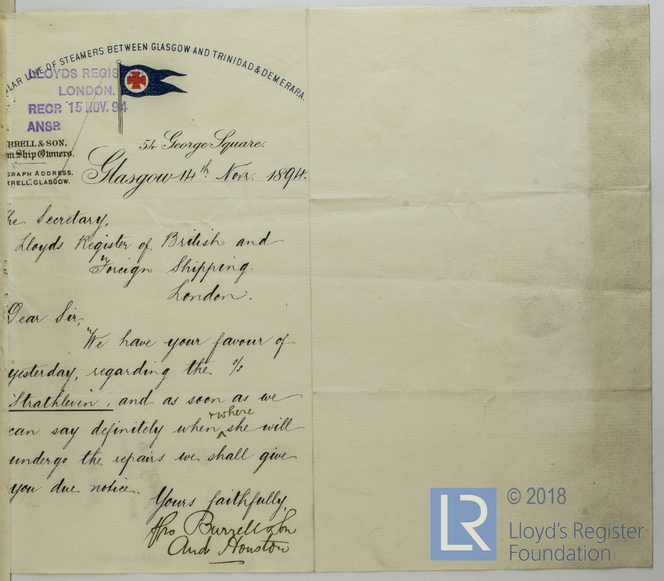 ULAR LINE OF STEAMERS BETWEEN GLASGOW AND TRINIDAD & DEMERARA.
LLOYDS REGIS
LONDON.
RECR 15 NOV. 94
ANSR
RRELL & SON,
m Ship Owners.
GRAPH ADDRESS,
RRELL, GLASGOW.
54 George Square.
Glasgow 14th Novr. 1894.
The Secretary,
Lloyds Register of British and
Foreign Shipping.
London.
Dear Sir,
We have your favour of
yesterday, regarding the S/S
Strathleven, and as soon as we
can say definitely when + where she will
undergo the repairs we shall give
you due notice.
Yours faithfully,
Pro Burrell & Son
Andw Houston
LR
© 2018
Lloyd's Register
Foundation